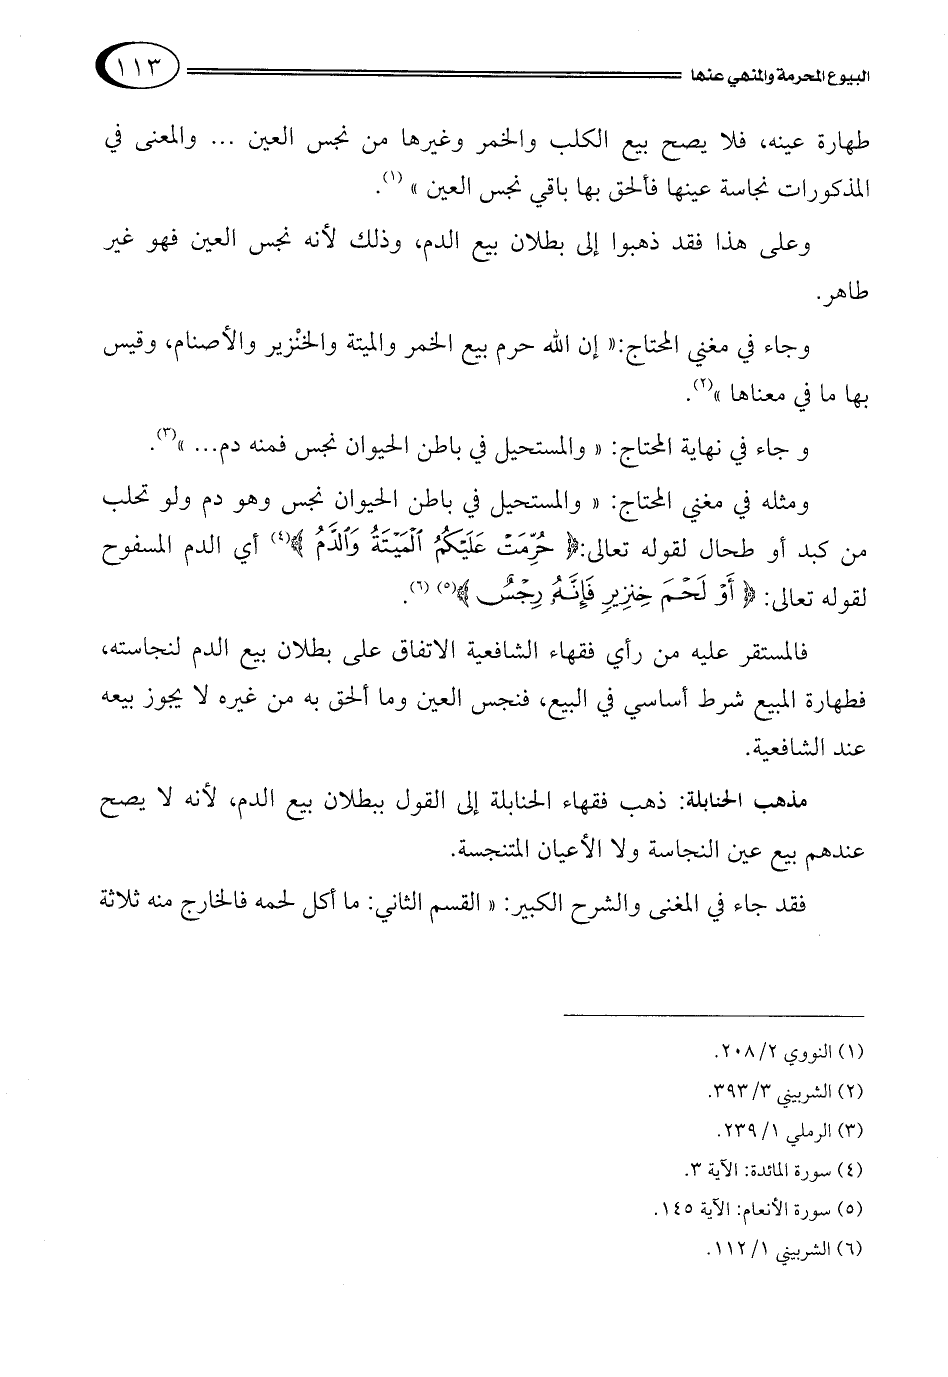 البيوع المحرمة والمنهي عنها ١١٣
طهارة عينه، فلا يصح بيع الكلب والخمر وغيرها من نجس العين ... والمعنى في
المذكورات نجاسة عينها فألحق بها باقي نجس العين » (١).
وعلى هذا فقد ذهبوا إلى بطلان بيع الدم، وذلك لأنه نجس العين فهو غير
طاهر.
وجاء في مغني المحتاج:« إن الله حرم بيع الخمر والميتة والخنْزير والأصنام، وقيس
بها ما في معناها »(٢).
و جاء في نهاية المحتاج: « والمستحيل في باطن الحيوان نجس فمنه دم... »(٣).
ومثله في مغني المحتاج: « والمستحيل في باطن الحيوان نجس وهو دم ولو تحلب
من كبد أو طحال لقوله تعالى:﴿ حُرِّمَتْ عَلَيْكُمُ ٱلْمَيْتَةُ وَٱلدَّمُ ﴾(٤) أي الدم المسفوح
لقوله تعالى: ﴿ أَوْ لَحْمَ خِنزِيرٍ فَإِنَّهُۥ رِجْسٌ ﴾(٥) (٦).
فالمستقر عليه من رأي فقهاء الشافعية الاتفاق على بطلان بيع الدم لنجاسته،
فطهارة المبيع شرط أساسي في البيع، فنجس العين وما ألحق به من غيره لا يجوز بيعه
عند الشافعية.
مذهب الحنابلة: ذهب فقهاء الحنابلة إلى القول ببطلان بيع الدم، لأنه لا يصح
عندهم بيع عين النجاسة ولا الأعيان المتنجسة.
فقد جاء في المغنى والشرح الكبير: « القسم الثاني: ما أكل لحمه فالخارج منه ثلاثة
(١) النووي ٢/ ٢٠٨.
(٢) الشربيني ٣/ ٣٩٣.
(٣) الرملي ١/ ٢٣٩.
(٤) سورة المائدة: الآية ٣.
(٥) سورة الأنعام: الآية ١٤٥.
(٦) الشربيني ١/ ١١٢.